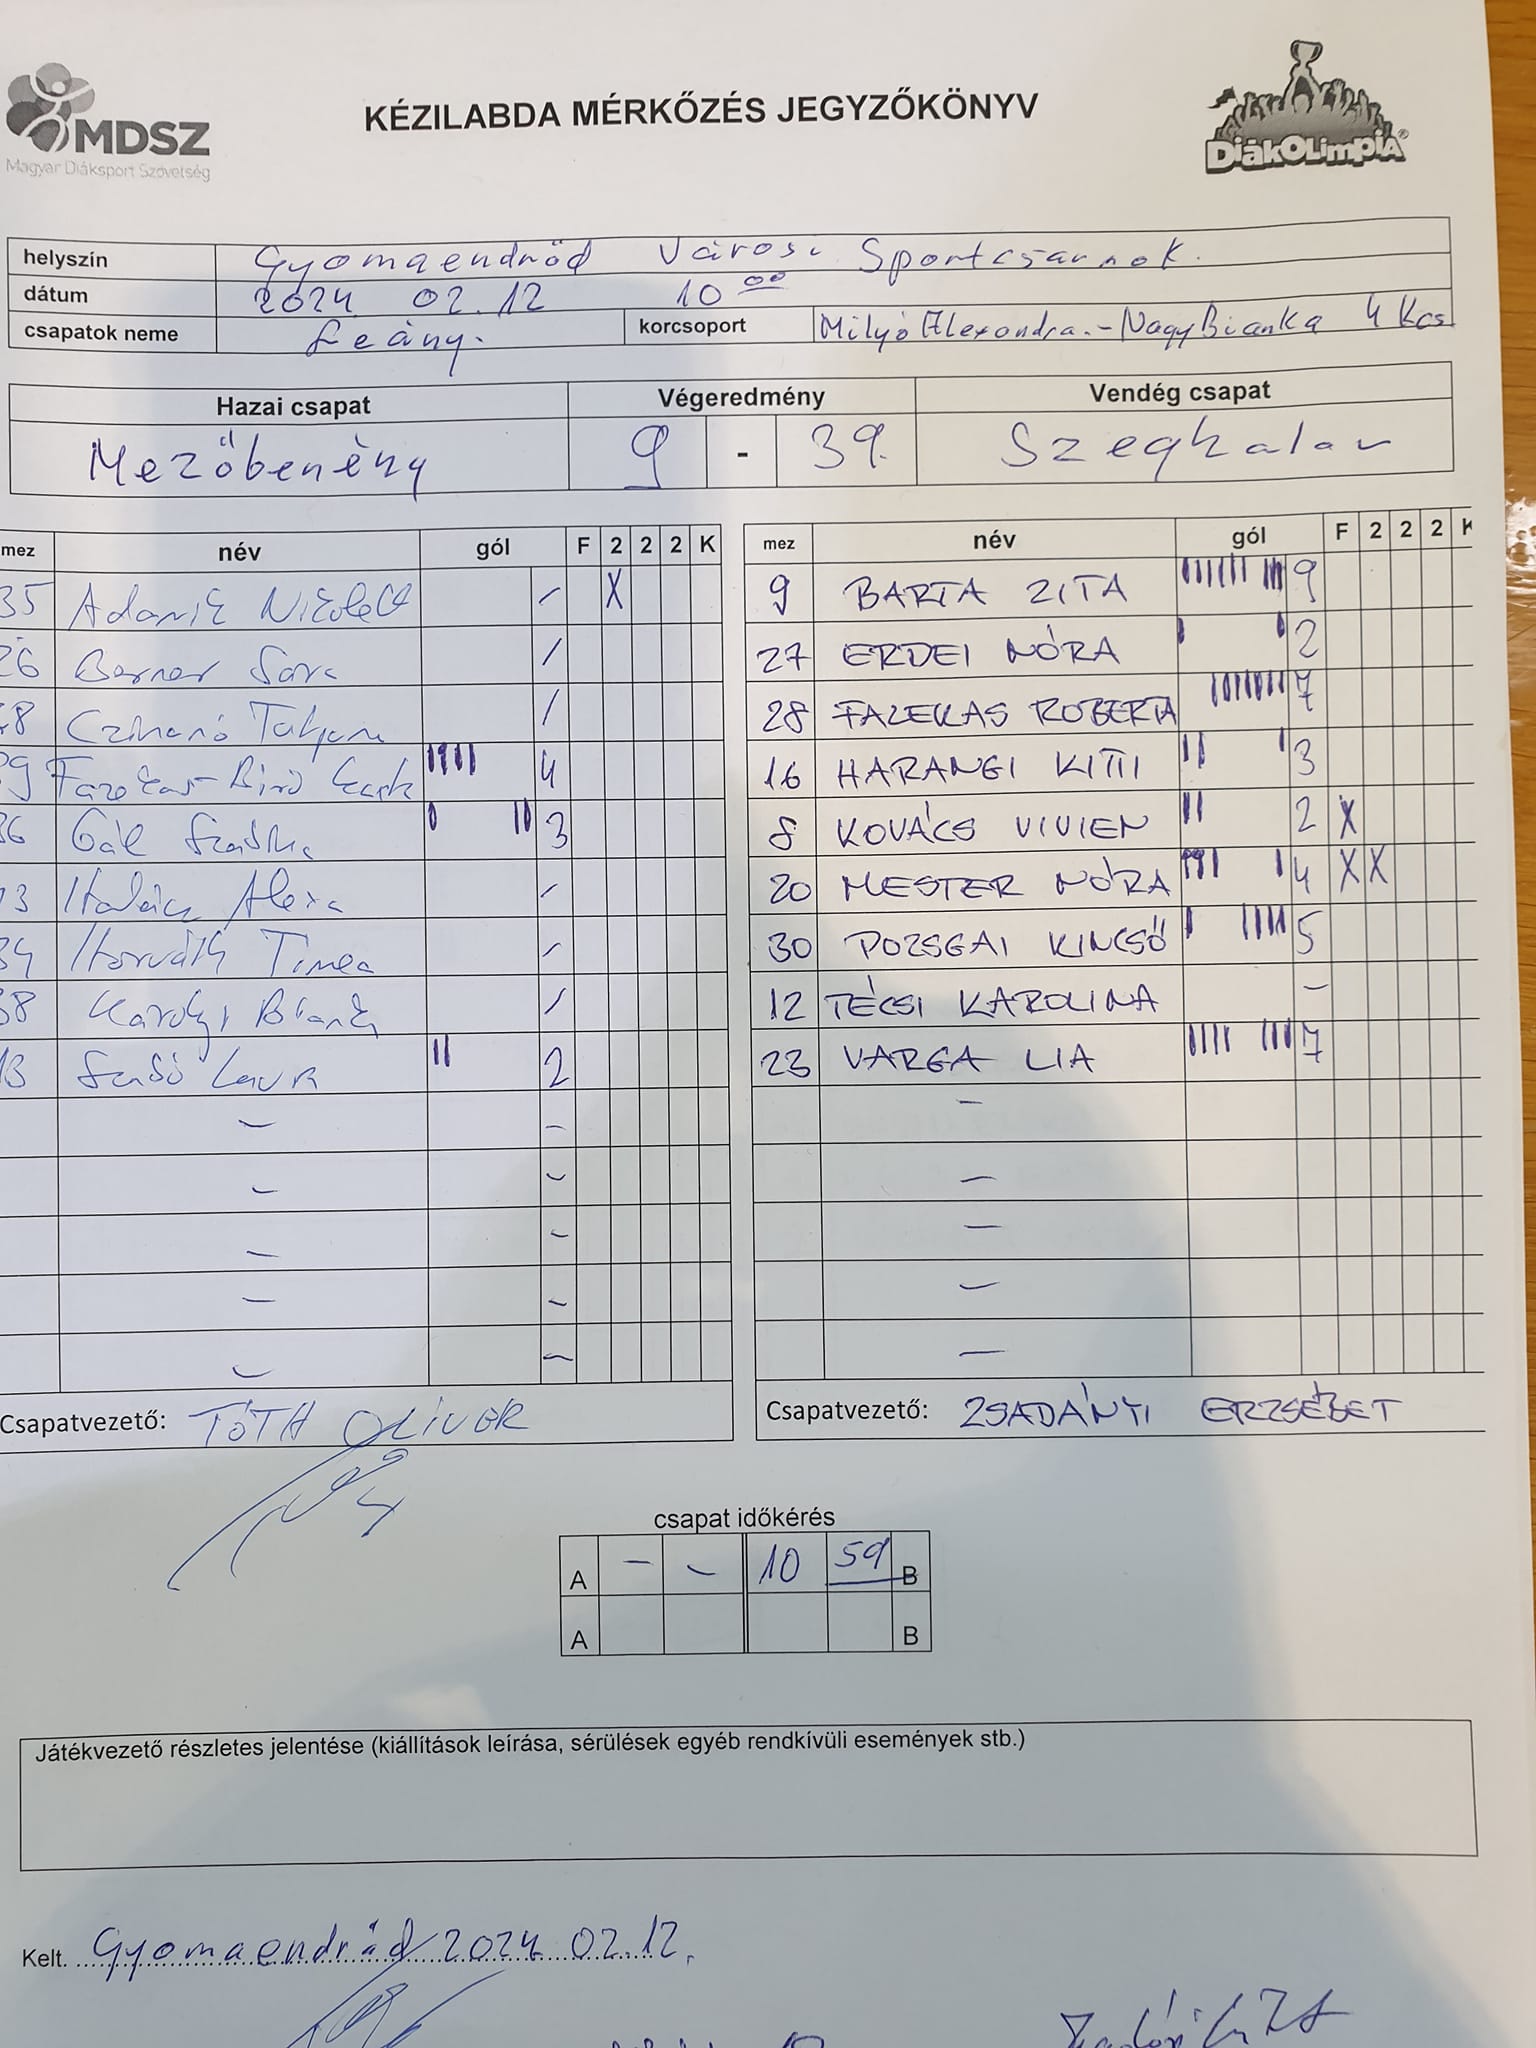 MDSZ
Magyar Diáksport Szövetség
KÉZILABDA MÉRKŐZÉS JEGYZŐKÖNYV
DiákOLimpiA®
helyszín Gyomaendrőd Városi Sportcsarnok.
dátum 2024 02.12 10 00
csapatok neme Leány. korcsoport Milyó Alexandra.-Nagy Bianka 4 Kcs
Hazai csapat Végeredmény Vendég csapat
Mezőberény 9 - 39. Szeghalom
mez név gól F 2 2 2 K
35 Adamik Nikolett - X
26 Berner Sára /
28 Tatjana /
Fazekas-Biró 4
36 Gál 3
Alexa -
34 Horváth Tímea -
38 Károlyi Bianka /
13 Szabó Laura 2
-
-
-
-
-
Csapatvezető: TÓTH OLIVÉR
mez név gól F 2 2 2 K
9 BARTA ZITA 9
27 ERDEI NÓRA 2
28 FAZEKAS ROBERTA 7
16 HARANGI KITTI 3
8 KOVÁCS VIVIEN 2 X
20 MESTER NÓRA 4 X X
30 POZSGAI KINCSŐ 5
12 TÉCSI KAROLINA -
23 VARGA LIA 7
-
-
-
-
-
Csapatvezető: ZSADÁNYI ERZSÉBET
csapat időkérés
A - - 10 59 B
A B
Játékvezető részletes jelentése (kiállítások leírása, sérülések egyéb rendkívüli események stb.)
Kelt. Gyomaendrőd 2024 02.12.